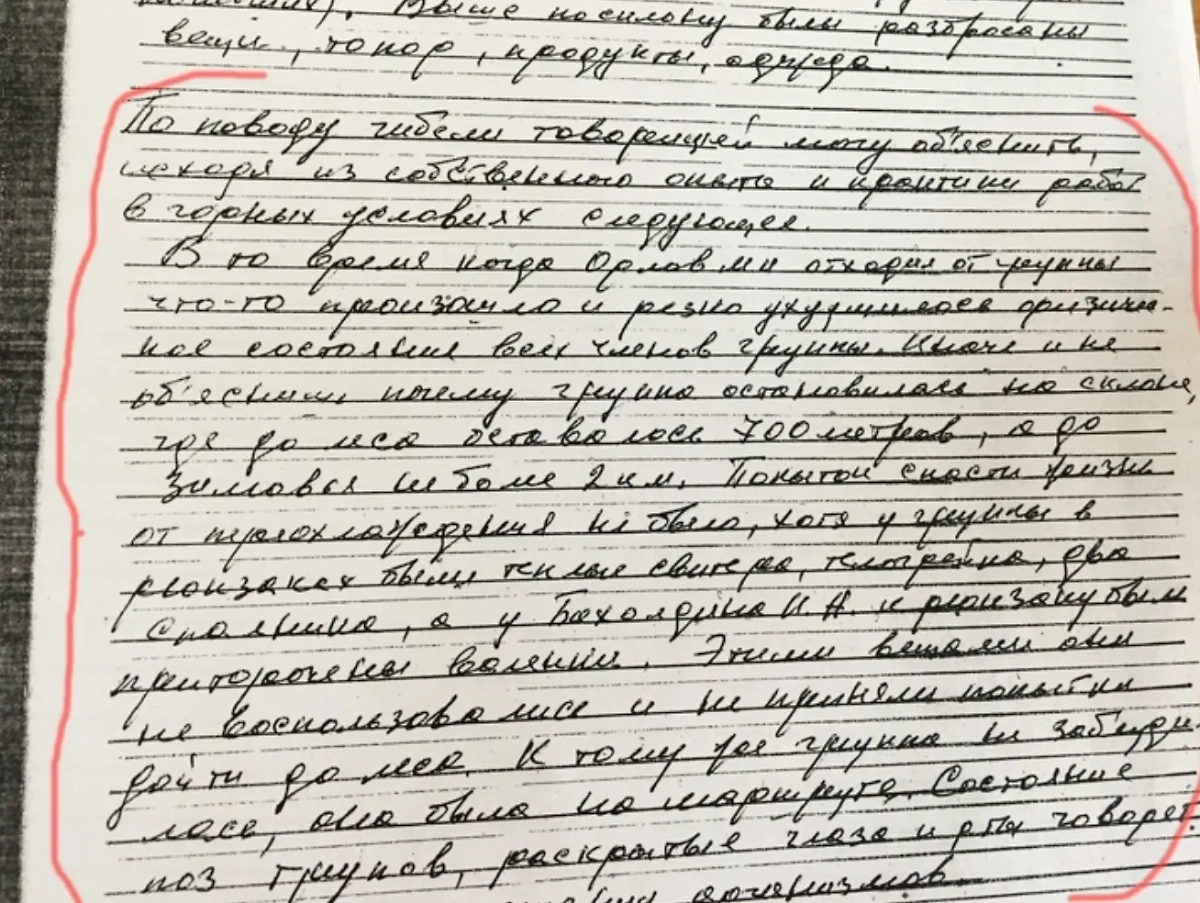 Выше по склону были разбросаны
вещи, топор, продукты, одежда.
По поводу гибели товарищей могу об'яснить,
исходя из собственного опыта и практики работ
в горных условиях следующее.
В то время когда Орлов ми отходил от группы
что-то произошло и резко ухудшилось физичес-
кое состояние всех членов группы. Иначе и не
об'яснишь почему группа остановилась на склоне,
где до леса оставалось 700 метров, а до
Зимовья не более 2 км. Попыток спасти жизнь
от переохлаждения не было, хотя у группы в
рюкзаках были теплые свитера, телогрейка, два
спальника, а у Бахолдина И.А. к рюкзаку были
приторочены валенки. Этими вещами они
не воспользовались и не приняли попытки
дойти до леса. К тому же группа не заблуди
лась, она была на маршруте. Состояние
поз трупов, раскрытые глаза и рты говорят
организмов.